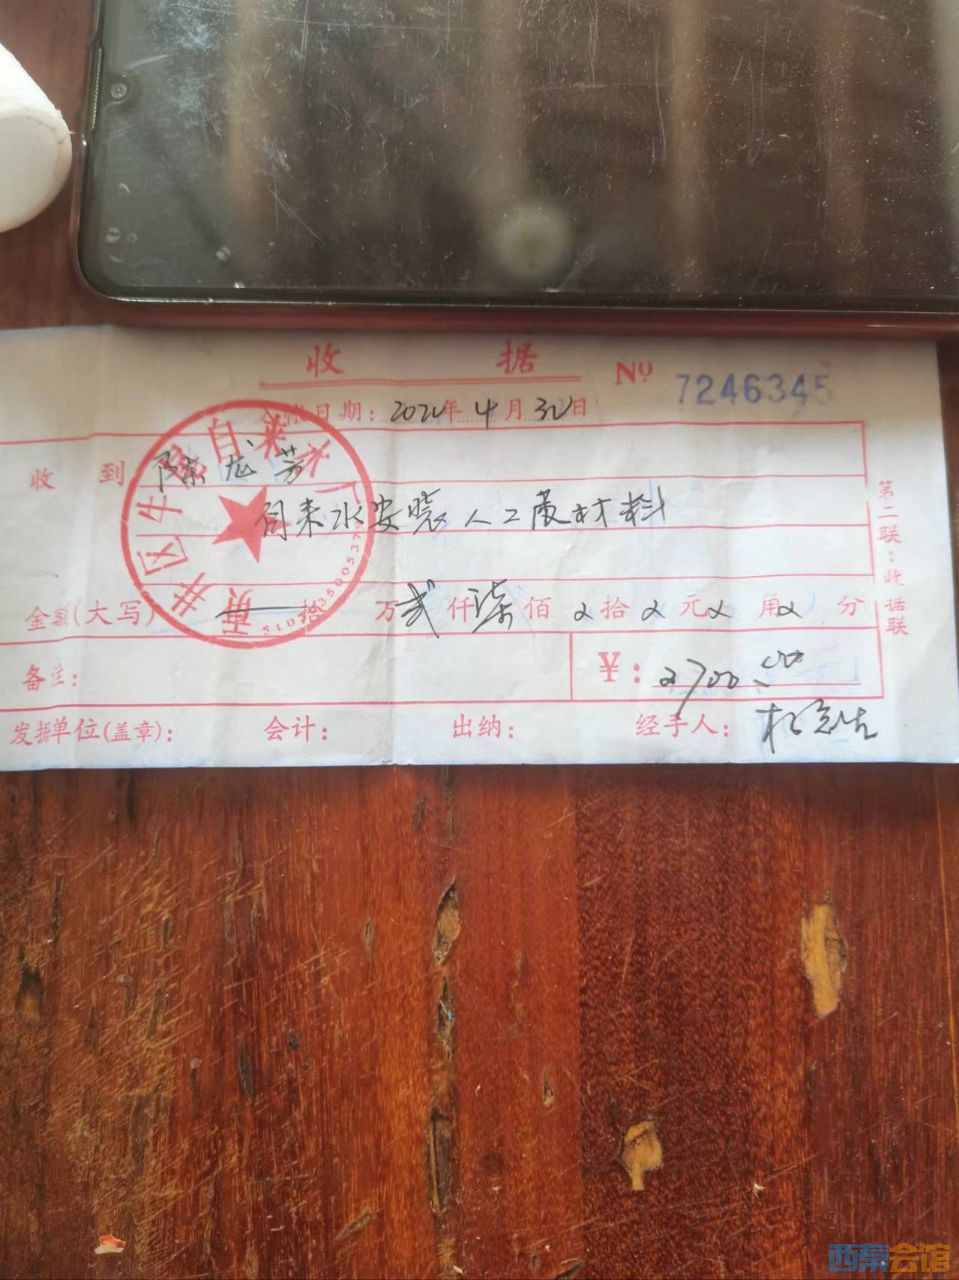 收 据 Nº 7246345
日期: 年 4 月 30 日
收 到 陈龙芳
自来水安装人工费材料
金额(大写) 拾 万 贰 仟 柒 佰 拾 元 角 分
备注: ¥: 2700.00
发据单位(盖章): 会计: 出纳: 经手人:
第二联:收据联
贡井区牛 自来水厂
西秦会馆